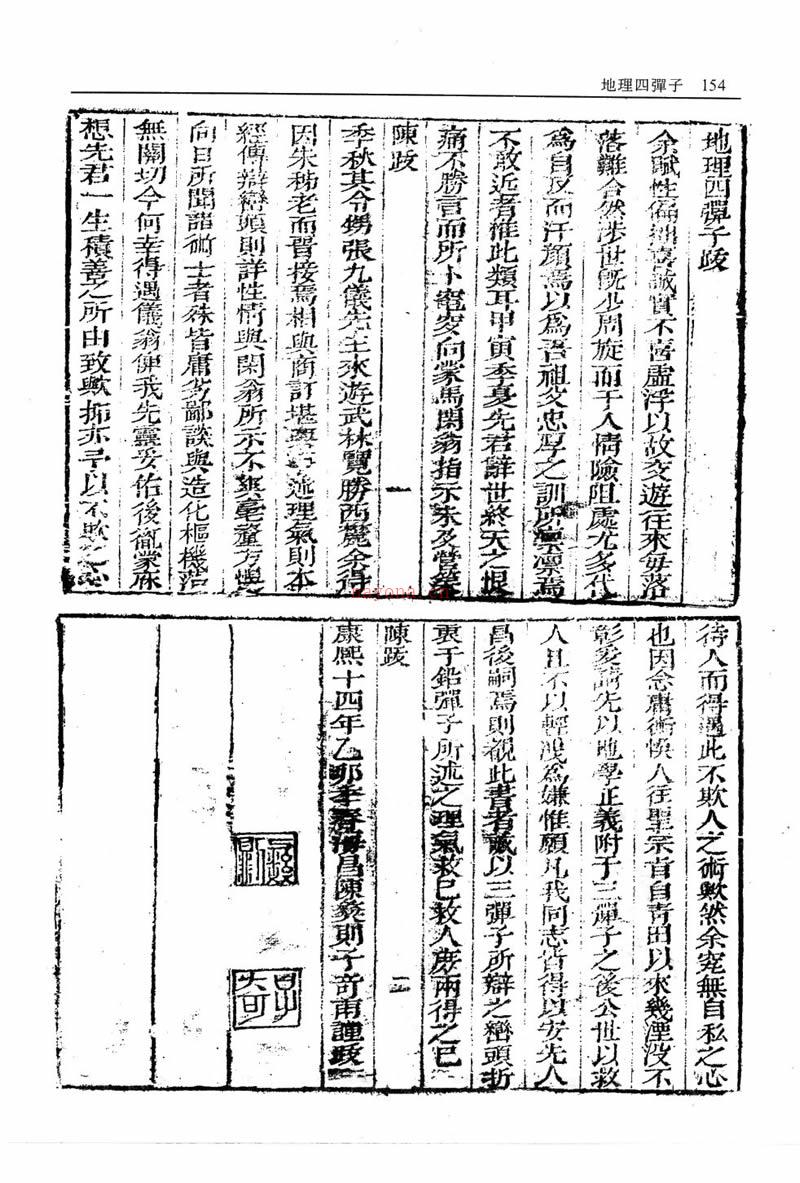 地理四彈子 154
地理四彈子跋
余賦性偏拙裏誠實不喜虛浮以故交遊往來每落
落難合然涉世既少周旋而于人情險阻處尤多代
為自反而汗顏焉以為吾祖父忠厚之訓所凜凜焉
不敢近者惟此類耳甲寅季夏先君辭世終天之恨
痛不勝言而所卜窀穸向蒙馬閑翁指示未及營葬
陳跋 一
季秋其令甥張九儀先生來遊武林覽勝西麓余得
因朱秭老而晋接焉相與商訂堪輿 述理氣則本
經傳辯巒頭則詳性情與閑翁所示不異毫釐方悞
向日所聞諸術士者殊皆庸劣鄙談與造化樞機落
無關切今何幸得遇儀翁俾我先靈妥佑後胤蒙庥
想先君一生積善之所由致歟抑亦予以不欺之心
待人而得遇此不欺人之術歟然余究無自私之心
也因念庸術悞人往聖宗旨自青田以來幾湮没不
彰爰請先以地學正義附于三彈子之後公世以救
人且不以輕淺為嫌惟願凡我同志皆得以安先人
昌後嗣焉則觀此書者誠以三彈子所辯之巒頭折
衷于鉛彈子所述之理氣救巳救人庶兩得之巳
陳跋 二
康熙十四年乙卯季春海昌陳 則子奇甫謹跋